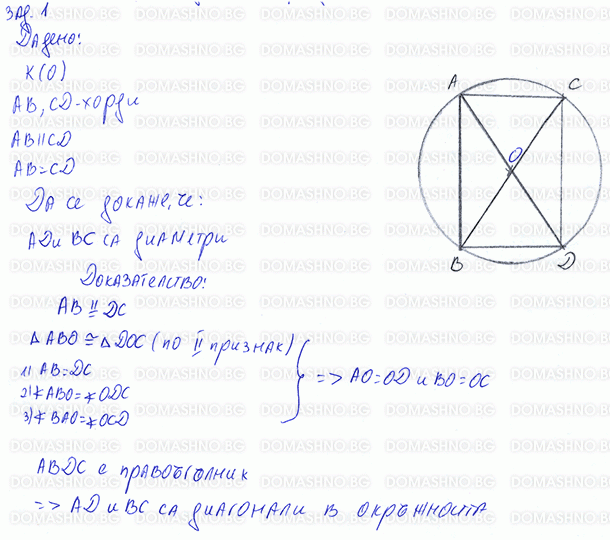 Зад. 1
Дадено:
K(O)
AB, CD - хорди
AB || CD
AB = CD
Да се докаже, че:
AD и BC са диаметри
Доказателство:
AB || = DC
△ ABO ≅ △ DOC (по II признак)
1) AB = DC
2) ∢ ABO = ∢ ODC
3) ∢ BAO = ∢ OCD
=> AO = OD и BO = OC
ABDC е правоъгълник
=> AD и BC са диагонали в окръжността
A
C
O
B
D
DOMASHNO.BG